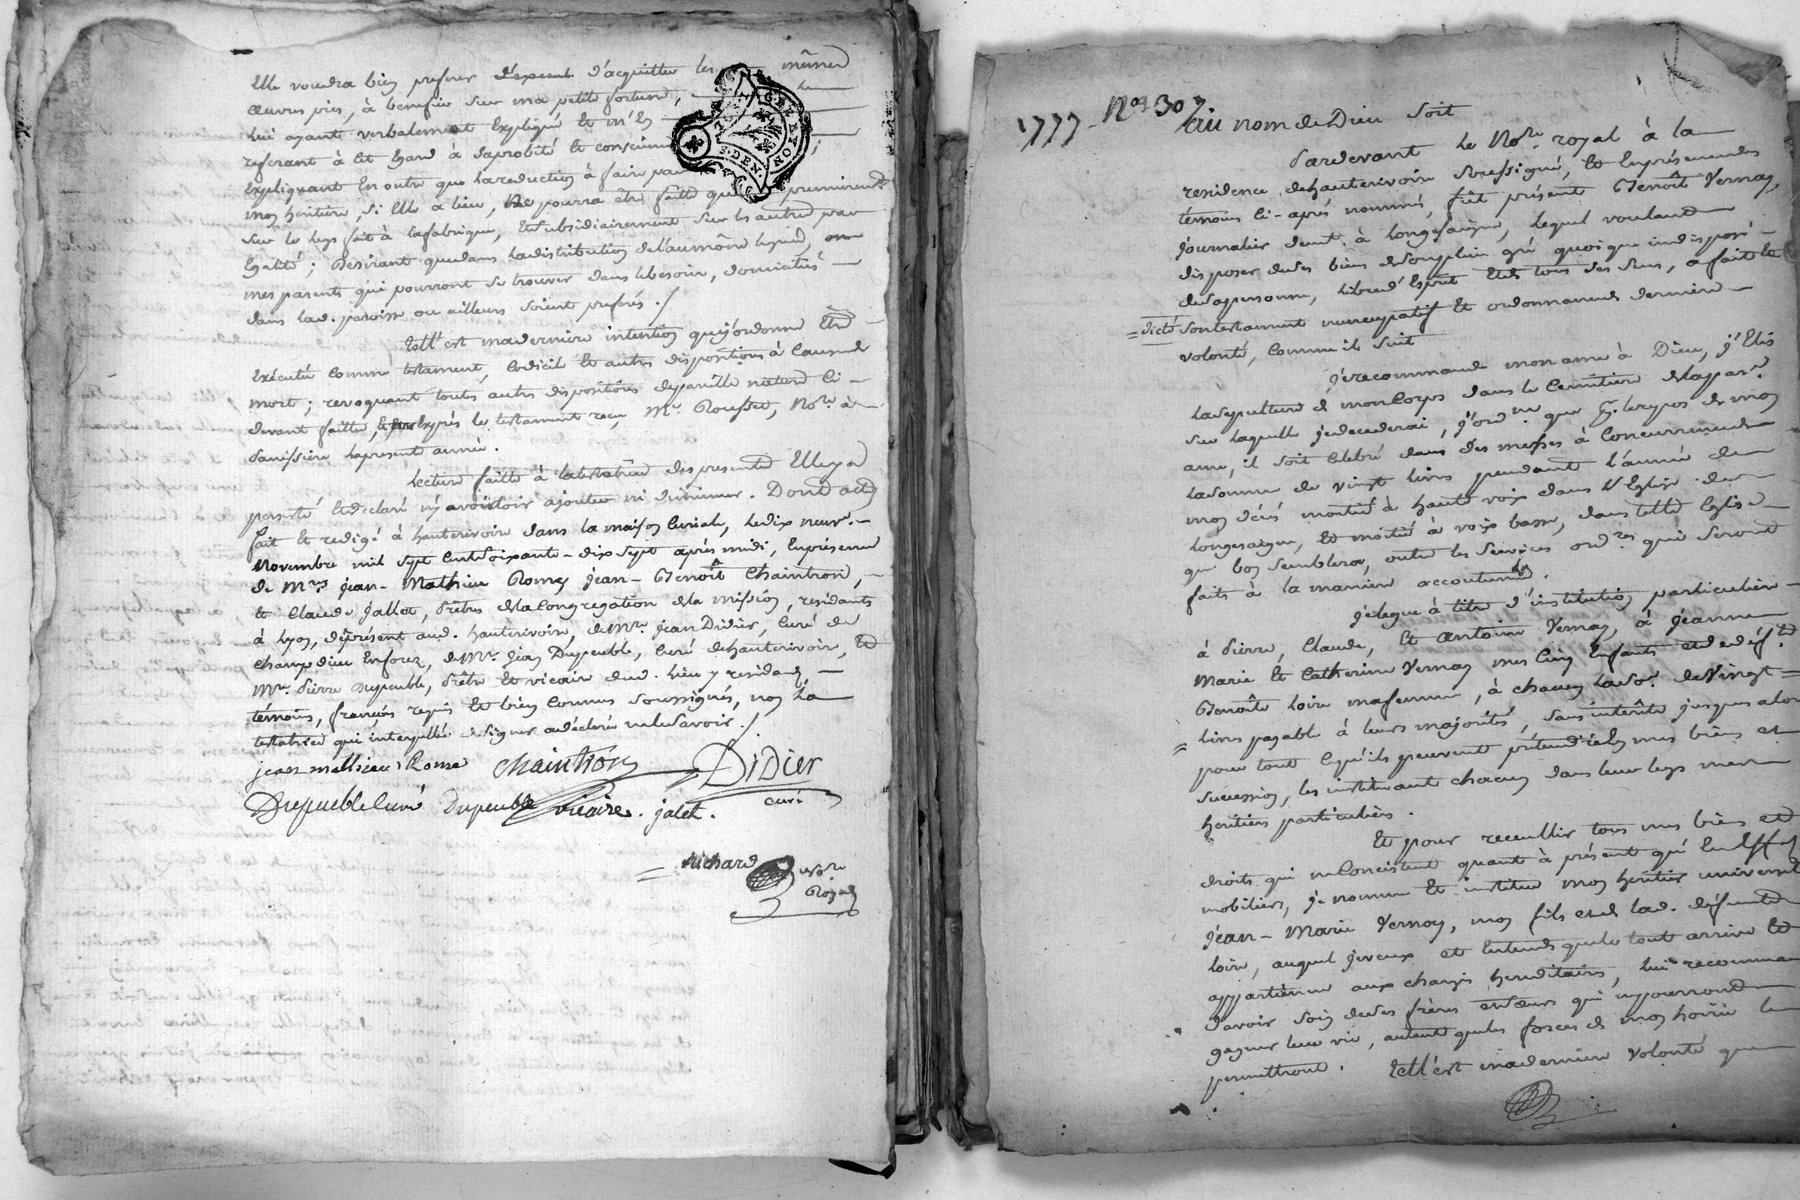 Elle voudra bien preferer d'acquitter les mêmes
œuvres pies, à benefice sur ma petite fortune,
lui ayant verbalement Expliqué Et m'En
referant à cet Egard à sa probité Et conscience
Expliquant En outre que la reduction à faire par
mon heritiere, si Elle a lieu, ne pourra être faitte que premierement
sur le legs fait à la fabrique, Et subsidiairement sur les autres par
Egalité; desirant que dans la distribution de l'aumône
mes parents qui pourront se trouver dans le besoin, domiciliés
dans lad. paroisse ou ailleurs soient preferés./
tell'est ma derniere intention que j'ordonne Etre
Exécutée comme testament, Codicile Et autres dispositions à Cause de
mort; revoquant toutes autres dispositions de pareille nature ci-
devant faittes, Exprès le testament reçu Mr. Rousset, Nore. à
la presente année.
Lecture faitte à la testatrice des presentes Elle y a
persisté Et declaré n'y avoir ajouter ni diminuer. Dont acte
fait Et redigé à hauterivoire dans la maison curiale, le dix neuf
Novembre mil sept Cent soixante-dix sept après midi, En présence
de Mrs jean-Mathieu Rome, jean-Benoît Chaintron,
Et Claude Jallot, Prêtres de la Congregation de la mission, residants
à Lyon, de présent aud. hauterivoire, de Mre. jean Didier, Curé de
champdieu En forez, de Mre. jean Dupeuble, Curé de hauterivoire, Et
Mre. Pierre Dupeuble, Prêtre Et vicaire dud. lieu y residant,
témoins, françois requis Et bien connus soussignés, non la
testatrice qui interpellée de signer a déclaré ne le savoir./
jean mathieu Rome Chaintron Didier
curé
Dupueble curé Dupeuble vicaire. jalot.
= Richard Nore
Royal
1777 - No. 307. Au nom de Dieu soit
Pardevant Le Nore. royal à la
residence de hauterivoire soussigné, Et En présence des
témoins ci-après nommés, fût présent Benoît Vernay,
journalier demt. à longesaigne, lequel voulant
disposer de ses biens de son plein gré quoique indisposé
de sa personne, libre d'Esprit Et de tous ses sens, a fait Et
= dicté son testament nuncupatif Et ordonnance de derniere
volonté, comme il suit
je recommande mon ame à Dieu, j'Elis
la sepulture de mon Corps dans le Cemitiere de la par.
sur laquelle je decederai, j'ord.ne que pr. le repos de mon
ame, il soit celebré dans des messes à Concurrence de
la somme de vingt livres pendant l'année de
mon décés moitié à haute voix dans l'Eglise de
longesaigne, Et moitié à voix basse, dans telle Eglise
que bon semblera, outre les services ord.res qui seront
faits à la maniere accoutumée.
je legue à titre d'institution particuliere
à Pierre, Claude, Et antoine Vernay, à Jeanne
Marie Et Catherine Vernay mes Cinq Enfants et de déf.te
Benoîte Loire ma femme, à chacun la so.e de Vingt =
= livres payable à leurs majorités, sans interêts jusques alors
pour tout ce qu'ils peuvent prétendre En mes biens et
succession, les instituant chacun dans leur legs mes
heritiers particuliers.
Et pour recueillir tous mes biens et
droits qui ne Consistent quant à présent qu'En Effets
mobiliers, je nomme Et institue mon heritier universel
jean-Marie Vernay, mon fils et de lad. défunte
Loire, auquel je veux et Entends que le tout arrive Et
appartienne aux charges hereditaires, lui recommandant
d'avoir soin de ses frères et sœurs qui ne pourront
gagner leur vie, autant que les forces de mon hoirie le
permettront. tell'est ma derniere Volonté que